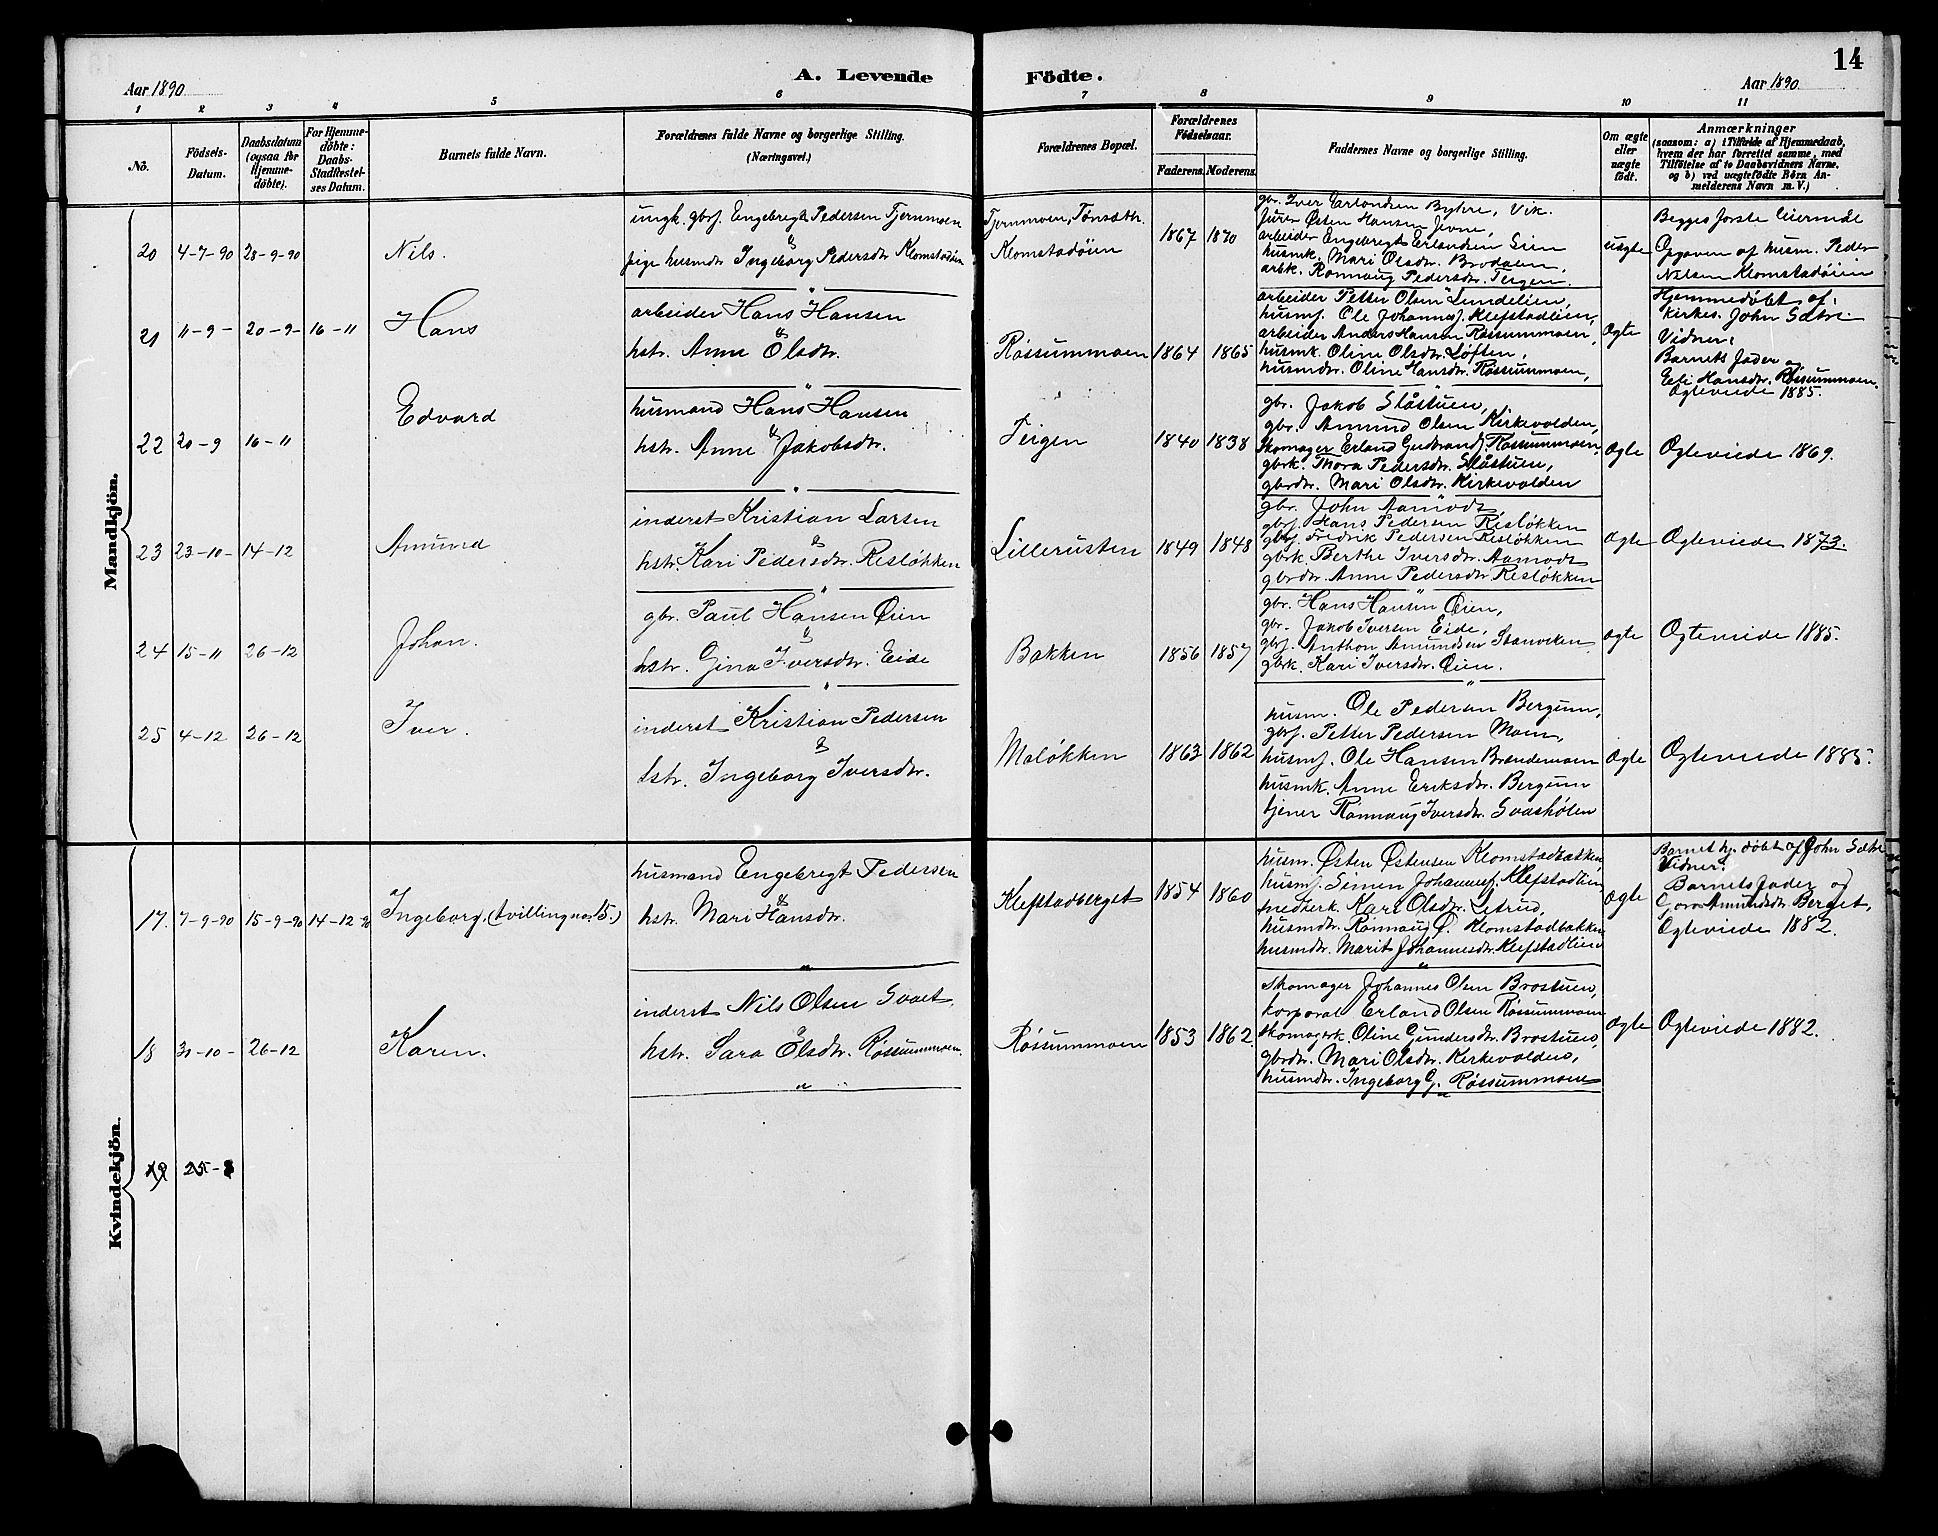 14
A. Levende Födte.
Aar 1890
Aar 1890.
1 2 3 4 5 6 7 8 9 10 11
No.
Födsels-
Datum.
Daabsdatum
(ogsaa for
Hjemme-
döbte).
For Hjemme-
döbte:
Daabs-
Stadfestel-
ses Datum.
Barnets fulde Navn.
Forældrenes fulde Navne og borgerlige Stilling.
(Næringsvei.)
Forældrenes Bopæl.
Forældrenes
Födselsaar.
Faderens. Moderens.
Faddernes Navne og borgerlige Stilling.
Om ægte
eller
uægte
födt.
Anmærkninger
(saasom: a) i Tilfælde af Hjemmedaab,
hvem der har forrettet samme, med
Tilföielse af to Daabsvidners Navne.
og b) ved uægtefödte Börn An-
melderens Navn m. V.)
Mandkjön.
20 4-7-90 28-9-90 Nils.
ungk. gbrs. Engebregt Pedersen Tjernmoen
&
pige husmdr. Ingeborg Pedersdtr. Klomstadöien
Tjernmoen, Tönseth.
Klomstadöien
1867 1870
gbr. Iver Erlandsen Byhre, Vik.
furer Østen Hansen Jevne,
arbeider Engebregt Erlandsen Lien
husmk. Mari Olsdtr. Brodalen,
arbk. Rønnaug Pedersdtr. Teigen.
uægte
Begges første Leiermål
Opgaven af husm. Peder
Nilsen Klomstadöien
21 11-9- 20-9- 16-11 Hans
arbeider Hans Hansen
&
hstr. Anne Olsdtr.
Røssummoen 1864 1865
arbeider Petter Olsen Lundelien,
husmf. Ole Johannesf. Klefstadlien,
arbeider Anders Hansen Røssummoen,
husmk. Oline Olsdtr. Løften,
husmdtr. Oline Hansdtr. Røssummoen,
Ægte
Hjemmedøbt af
Kirkes. John Sætre
Vidner:
Barnets Fader og
Eli Hansdtr. Røssummoen.
Ægteviede 1885.
22 20-9 16-11 Edvard
husmand Hans Hansen
&
hstr. Anne Jakobsdtr.
Teigen 1840 1838
gbr. Jakob Slåstuen,
gbr. Amund Olsen Kirkevolden,
Skomager Erland Gudbrandf. Røssummoen
gbrk. Thora Pedersdtr. Slåstuen,
gbrdtr. Mari Olsdtr. Kirkevolden
Ægte Ægteviede 1869.
23 23-10- 14-12 Amund
inderst Kristian Larsen
&
hstr. Kari Pedersdtr. Resløkken
Lillerusten 1849 1848
gbr. John Aamodt,
gbrs. Hans Pedersen Resløkken
gbrs. Fredrik Pedersen Resløkken
gbrk. Berthe Iversdtr. Aamodt
gbrdtr. Anne Pedersdtr. Resløkken
Ægte Ægteviede 1873.
24 15-11 26-12 Johan.
gbr. Paul Hansen Øien
&
hstr. Gina Iversdtr. Eide
Bakken 1856 1857
gbr. Hans Hansen Øien,
gbr. Jakob Iversen Eide,
gbrs. Anthon Amundsen Stanviken
gbrk. Kari Iversdtr. Øien.
Ægte Ægteviede 1885.
25 4-12 26-12 Iver.
inderst Kristian Pedersen
&
hstr. Ingeborg Iversdtr.
Moløkken 1863 1862
husm. Ole Pedersen Bergum,
gbrs. Petter Pedersen Moen,
husmf. Ole Hansen Brændemoen
husmk. Anne Eriksdtr. Bergum
tjener Rønnaug Iversdtr. Svashölen
Ægte Ægteviede 1885.
Kvindekjön.
17. 7-9-90 15-9-90 14-12 90 Ingeborg, (tvilling nos 15.)
husmand Engebregt Pedersen
&
hstr. Mari Hansdtr.
Klefstadberget 1854 1860
husm. Østen Østensen Klomstadbakken,
husmf. Simen Johannesf. Klefstadlien
Snedkerk. Kari Olsdtr. Letrud,
husmdtr. Rønnaug Ø. Klomstadbakken
husmdtr. Marit Johannesdtr. Klefstadlien
Ægte
Barnet hj. døbt af John Sætre
Vidner:
Barnets Fader og
Goro Amundsdtr. Berget,
Ægteviede 1882.
18 31-10- 26-12 Karen.
inderst Nils Olsen Svaet
&
hstr. Sara Olsdtr. Røssummoen
Røssummoen 1853 1862
Skomager Johannes Olsen Brostuen,
korporal Erland Olsen Røssummoen
skomagerk. Oline Gundersdtr. Brostuen,
gbrdtr. Mari Olsdtr. Kirkevolden,
husmdtr. Ingeborg G. Røssummoen
Ægte Ægteviede 1882.
19 25-